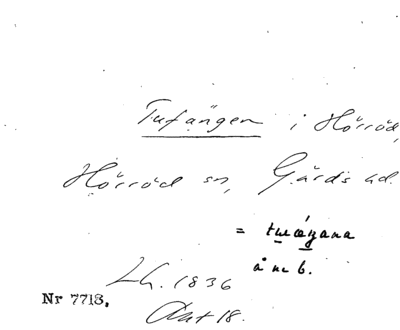 Tufängen i Hörröd,
Hörröd sn, Gärds hd.
=
å m b.
Lh. 1836
Akt 18.
Nr 7713.